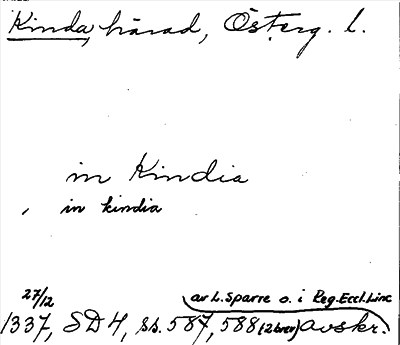 Kinda härad, Österg. l.
in Kindia
in kindia
27/12 av L. Sparre o. i Reg. Eccl. Linc
1337, SD4, ss. 587, 588 (2 brev) avskr.